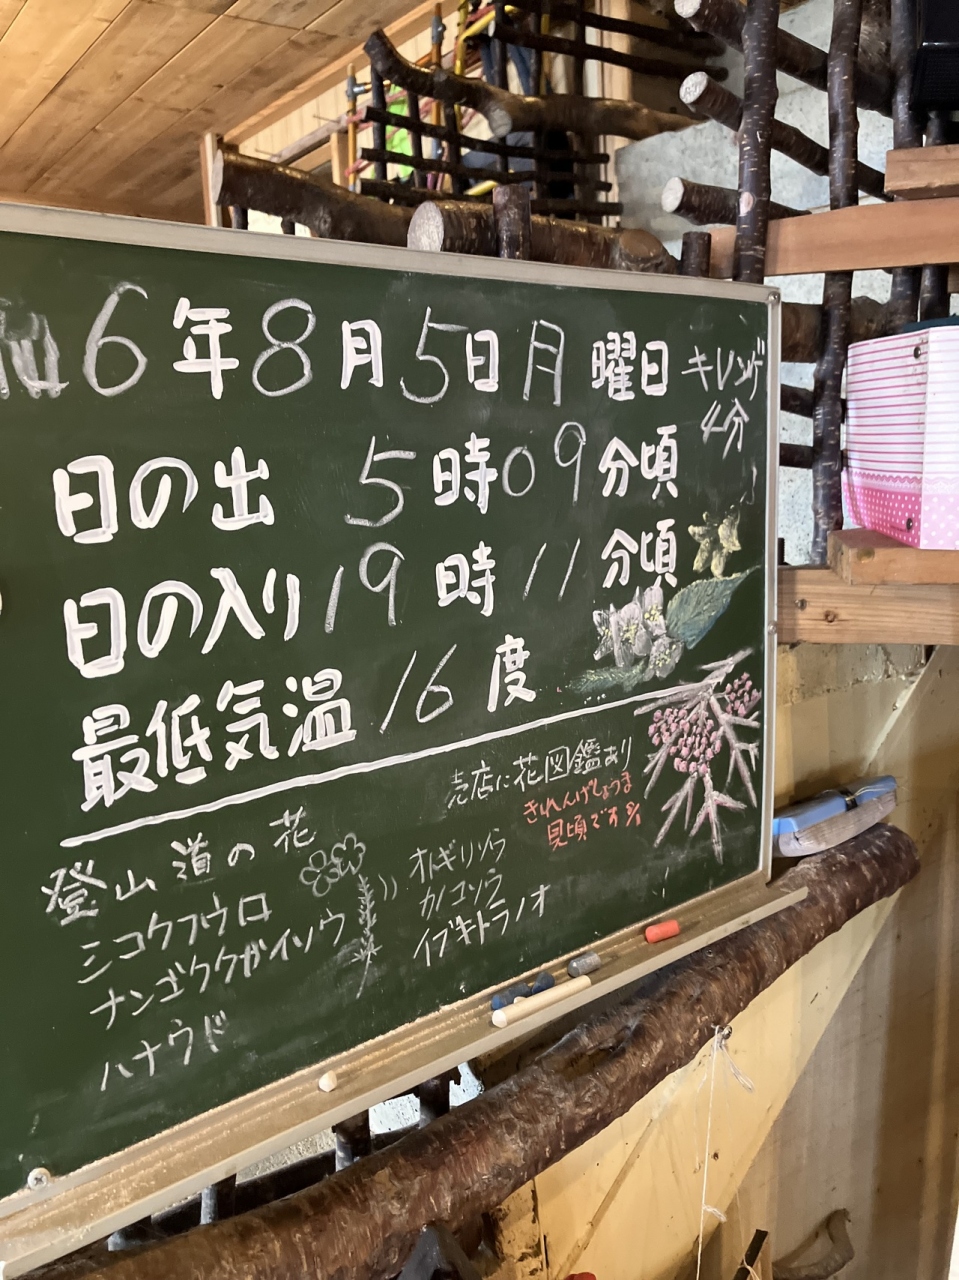 6年8月5日月曜日
キレンゲ
4分
日の出 5時09分頃
日の入り19時11分頃
最低気温16度
売店に花図鑑あり
きれんげしょうま
見頃です
登山道の花
シコクフウロ
ナンゴククガイソウ
ハナウド
オトギリソウ
カノコソウ
イブキトラノオ